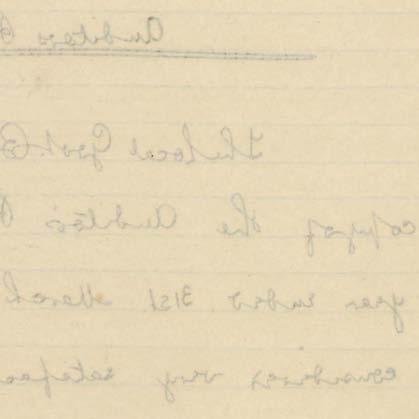 Auditors
The Local Govt. B
copy of the Auditor's
year ended 31st March
considered very satisfac